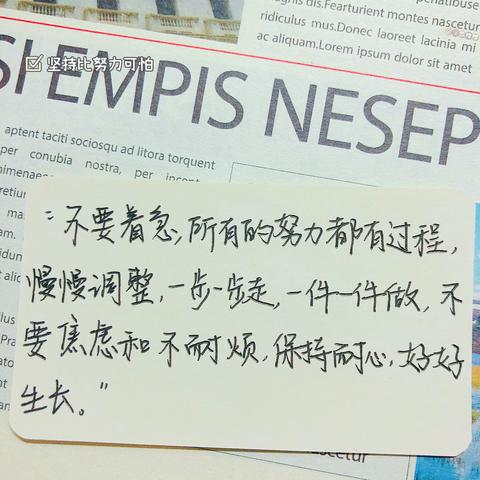 penatibuse
dis.Fearturient montes nascetur
ridiculus mus.Donec laoreet lacinia mi
ac aliquam.Lorem ipsum dolor sit amet
坚持比努力可怕
SI EMPIS NESEP
aptent taciti sociosqu ad litora torquent
per conubia nostra, per
"不要着急,所有的努力都有过程,
慢慢调整,一步一步走,一件一件做,不
要焦虑和不耐烦,保持耐心,好好
生长。"